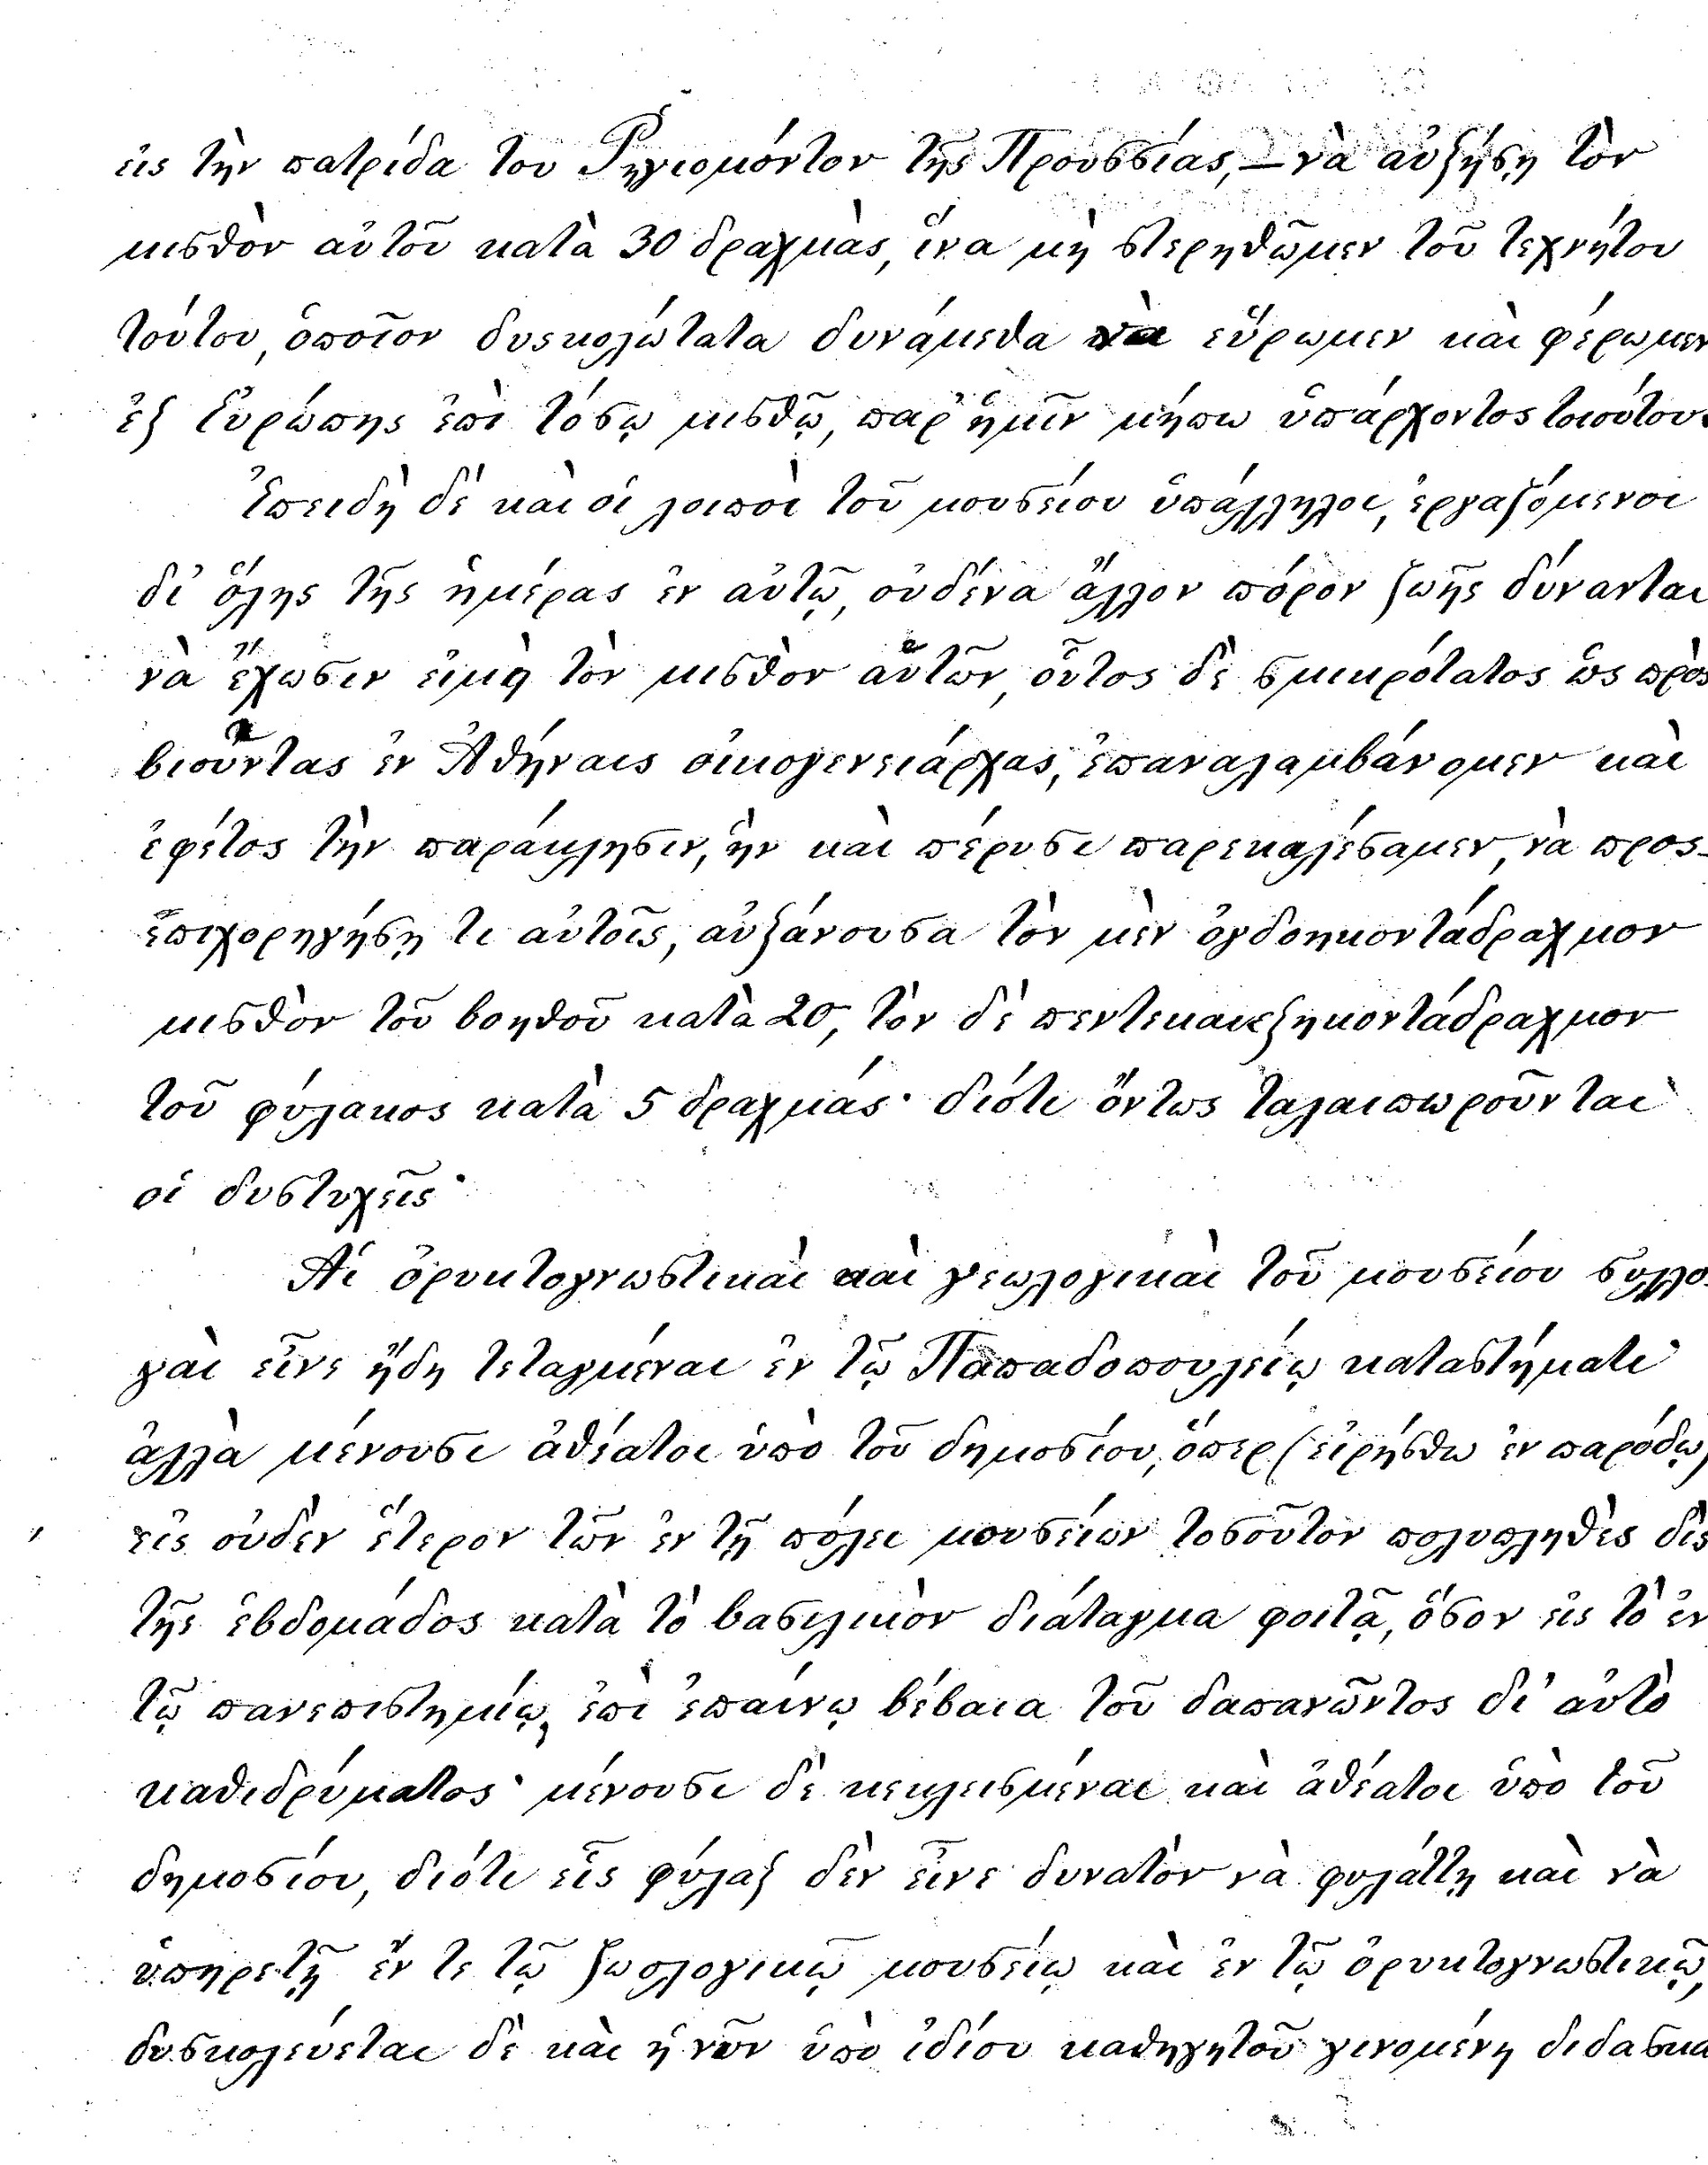 εἰς τὴν πατρίδα του Ῥηγιομόντον τῆς Προυσσίας,— νὰ αὐξήσῃ τὸν
μισθὸν αὐτοῦ κατὰ 30 δραχμὰς, ἵνα μὴ στερηθῶμεν τοῦ τεχνήτου
τούτου, ὁποῖον δυσκολώτατα δυνάμεθα νὰ εὕρωμεν καὶ φέρωμεν
ἐξ Εὐρώπης ἐπὶ τόσῳ μισθῷ, παρ' ἡμῖν μήπω ὑπάρχοντος τοιούτου.
Ἐπειδὴ δὲ καὶ οἱ λοιποὶ τοῦ μουσείου ὑπάλληλοι, ἐργαζόμενοι
δι' ὅλης τῆς ἡμέρας ἐν αὐτῷ, οὐδένα ἄλλον πόρον ζωῆς δύνανται
νὰ ἔχωσιν εἰμὴ τὸν μισθὸν αὑτῶν, οὗτος δὲ σμικρότατος ὡς πρὸς
βιοῦντας ἐν Ἀθήναις οἰκογενειάρχας, ἐπαναλαμβάνομεν καὶ
ἐφέτος τὴν παράκλησιν, ἣν καὶ πέρυσι παρεκαλέσαμεν, νὰ προς-
επιχορηγήσῃ τι αὐτοῖς, αὐξάνουσα τὸν μὲν ὀγδοηκοντάδραχμον
μισθὸν τοῦ βοηθοῦ κατὰ 20, τὸν δὲ πεντεκαιεξηκοντάδραχμον
τοῦ φύλακος κατὰ 5 δραχμάς· διότι ὄντως ταλαιπωροῦνται
οἱ δυστυχεῖς·
Αἱ ὀρυκτογνωστικαὶ καὶ γεωλογικαὶ τοῦ μουσείου συλλο-
γαὶ εἶνε ἤδη τεταγμέναι ἐν τῷ Παπαδοπουλείῳ καταστήματι·
ἀλλὰ μένουσι ἀθέατοι ὑπὸ τοῦ δημοσίου, ὅπερ (εἰρήσθω ἐν παρόδῳ)
εἰς οὐδὲν ἕτερον τῶν ἐν τῇ πόλει μουσείων τοσοῦτον πολυπληθὲς δὶς
τῆς ἑβδομάδος κατὰ τὸ βασιλικὸν διάταγμα φοιτᾷ, ὅσον εἰς τὸ ἐν
τῷ πανεπιστημίῳ, ἐπὶ ἐπαίνῳ βέβαια τοῦ δαπανῶντος δι' αὐτὸ
καθιδρύματος· μένουσι δὲ κεκλεισμέναι καὶ ἀθέατοι ὑπὸ τοῦ
δημοσίου, διότι εἷς φύλαξ δὲν εἶνε δυνατὸν νὰ φυλάττῃ καὶ νὰ
ὑπηρετῇ ἔν τε τῷ ζωολογικῷ μουσείῳ καὶ ἐν τῷ ὀρυκτογνωστικῷ,
δυσκολεύεται δὲ καὶ ἡ νῦν ὑπὸ ἰδίου καθηγητοῦ γινομένη διδασκα